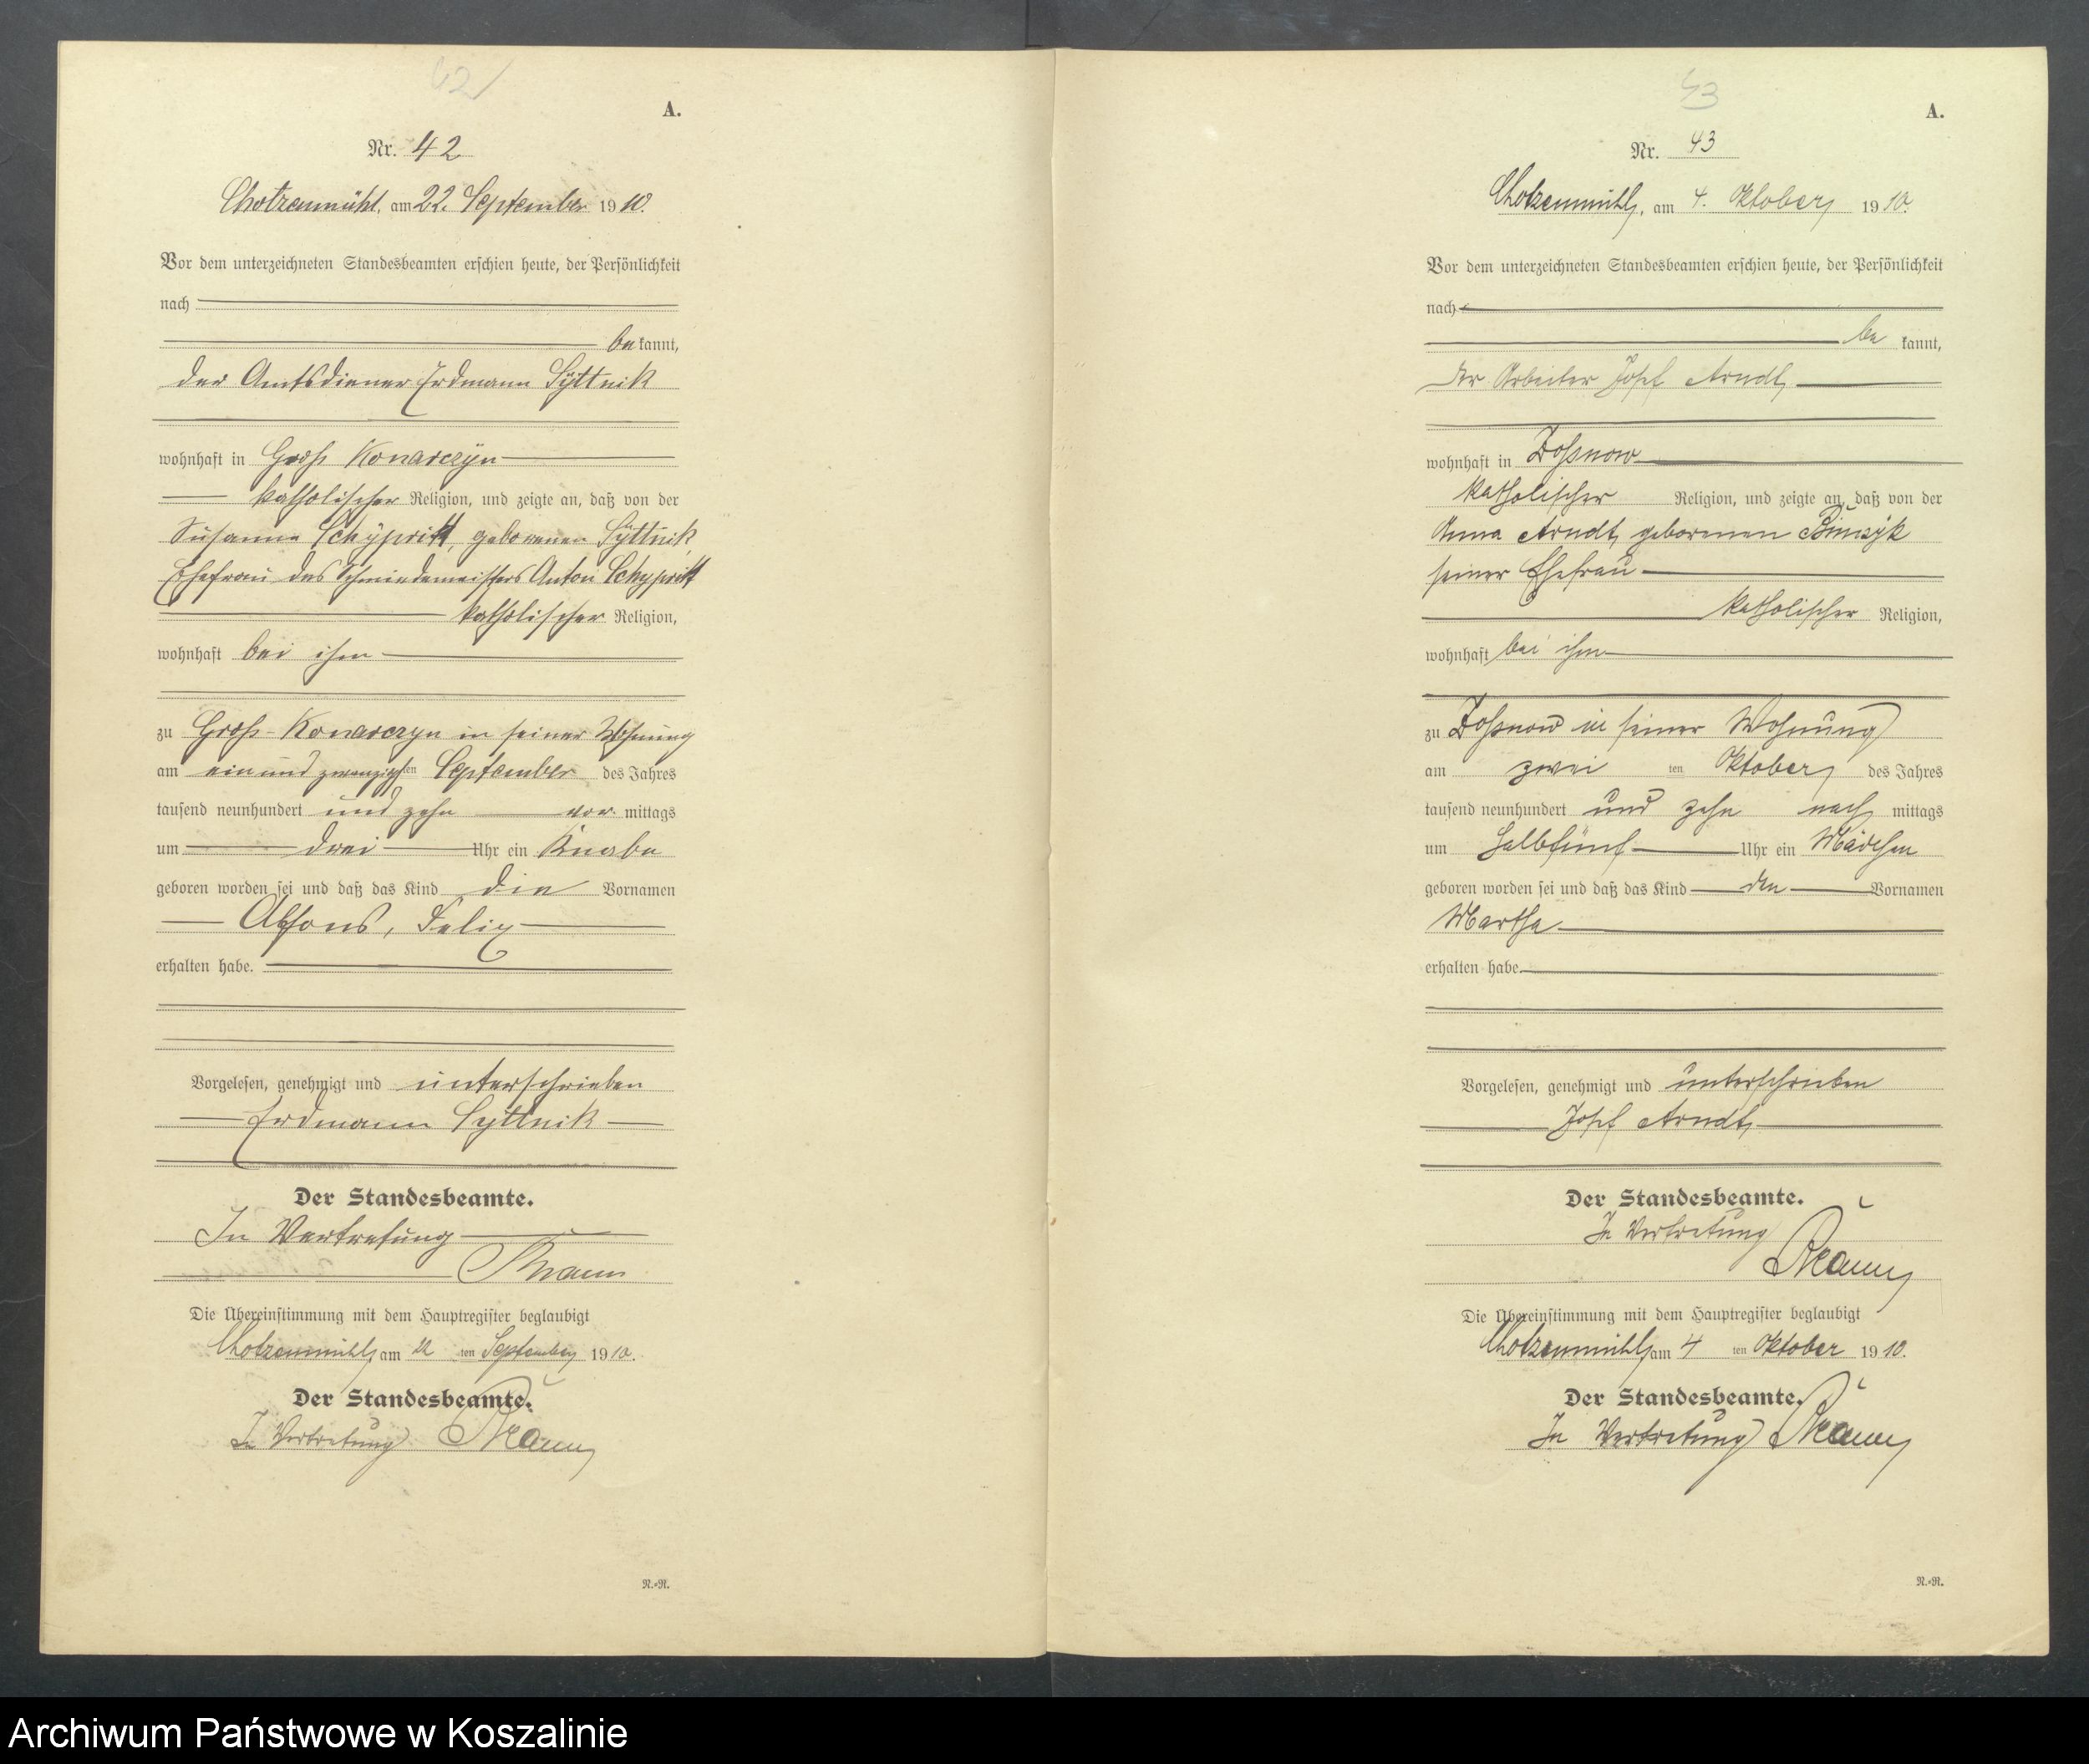 42
A.
Nr. 42
Chotzenmühl, am 22. September 1910.
Vor dem unterzeichneten Standesbeamten erschien heute, der Persönlichkeit
nach
be kannt,
der Amtsdiener Erdmann Syttnik
wohnhaft in Groß Konarczyn
katholischer Religion, und zeigte an, daß von der
Susanna Schypritt, geborenen Syttnik,
Ehefrau des Schmiedemeisters Anton Schypritt
katholischer Religion,
wohnhaft bei ihm
zu Groß-Konarczyn in seiner Wohnung
am einundzwanzigsten September des Jahres
tausend neunhundert und zehn vor mittags
um drei Uhr ein Knabe
geboren worden sei und daß das Kind die Vornamen
Alfons, Felix
erhalten habe.
Vorgelesen, genehmigt und unterschrieben
Erdmann Syttnik
Der Standesbeamte.
In Vertretung
Die Übereinstimmung mit dem Hauptregister beglaubigt
Chotzenmühl, am 22 ten September 1910.
Der Standesbeamte.
In Vertretung
N.-N.
43
A.
Nr. 43
Chotzenmühl, am 4. Oktober 1910.
Vor dem unterzeichneten Standesbeamten erschien heute, der Persönlichkeit
nach
be kannt,
der Arbeiter Josef Arndt,
wohnhaft in Zoßnow
katholischer Religion, und zeigte an, daß von der
Anna Arndt, geborenen
seiner Ehefrau
katholischer Religion,
wohnhaft bei ihm
zu Zoßnow in seiner Wohnung
am zwei ten Oktober des Jahres
tausend neunhundert und zehn nach mittags
um halbfünf Uhr ein Mädchen
geboren worden sei und daß das Kind den Vornamen
Martha
erhalten habe.
Vorgelesen, genehmigt und unterschrieben
Josef Arndt,
Der Standesbeamte.
In Vertretung
Die Übereinstimmung mit dem Hauptregister beglaubigt
Chotzenmühl, am 4 ten Oktober 1910.
Der Standesbeamte.
In Vertretung
N.-N.
Archiwum Państwowe w Koszalinie